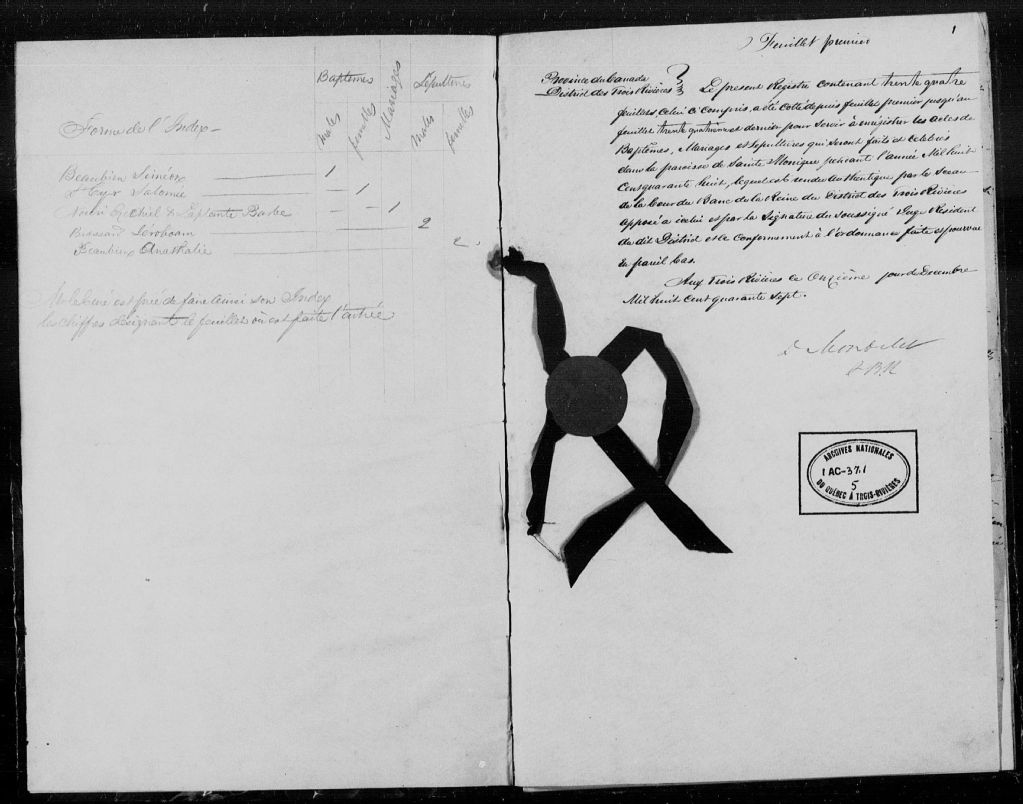 Baptêmes
Mariages
Sépultures
mâles
femelles
mâles
femelle
Forme de l'Index
Beaubien Siméon 1
St Cyr Salomée 1
Ezechiel & Laplante Barbe 1
Brassard Jéroboam 2
Beaubien Anathalie 2
Mr le Curé est prié de faire ainsi son Index
les chiffres désignant le feuillet où est faite l'entrée
1
Feuillet premier
Province du Canada
District des Trois Rivières
Le présent Registre contenant trente quatre
feuillets, celui ci compris, a été cotté depuis feuillet premier jusqu'au
feuillet trente quatrième et dernier pour servir à enrégistrer les actes de
Baptêmes, Mariages et Sépultures qui seront faits et célébrés
dans la paroisse de Sainte Monique pendant l'année Mil huit
Cent quarante huit, lequel est rendu authentique par le Sceau
de la Cour du Banc de la Reine du District des Trois Rivières
apposé à icelui et par la Signature du Soussigné Juge Résident
du dit District et le conformément à l'ordonnance faite et pourvue
en pareil Cas.
Aux Trois Rivières ce Onzième jour de Decembre
Mil huit cent quarante Sept.
D Mondelet
J B.R
ARCHIVES NATIONALES
1 AC-37.1
5
DU QUÉBEC À TROIS-RIVIÈRES